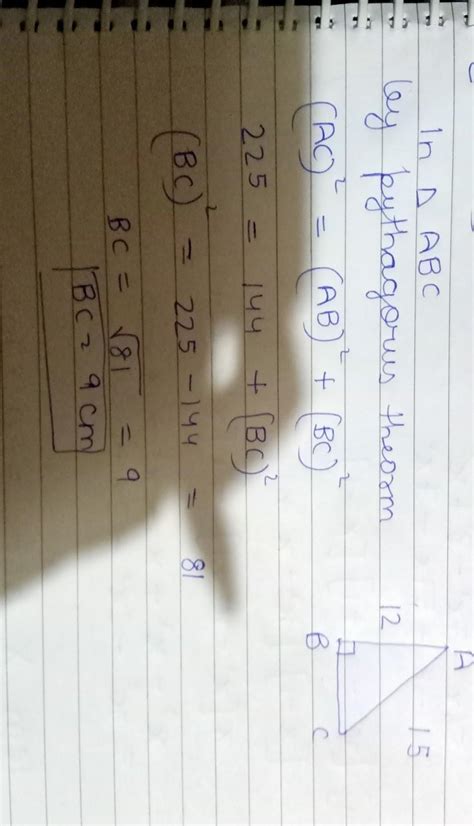 In Δ ABC
by pythagorus theorm
(AC)² = (AB)² + (BC)²
225 = 144 + (BC)²
(BC)² = 225 - 144 = 81
BC = √81 = 9
BC = 9 cm
A
12
15
B
C